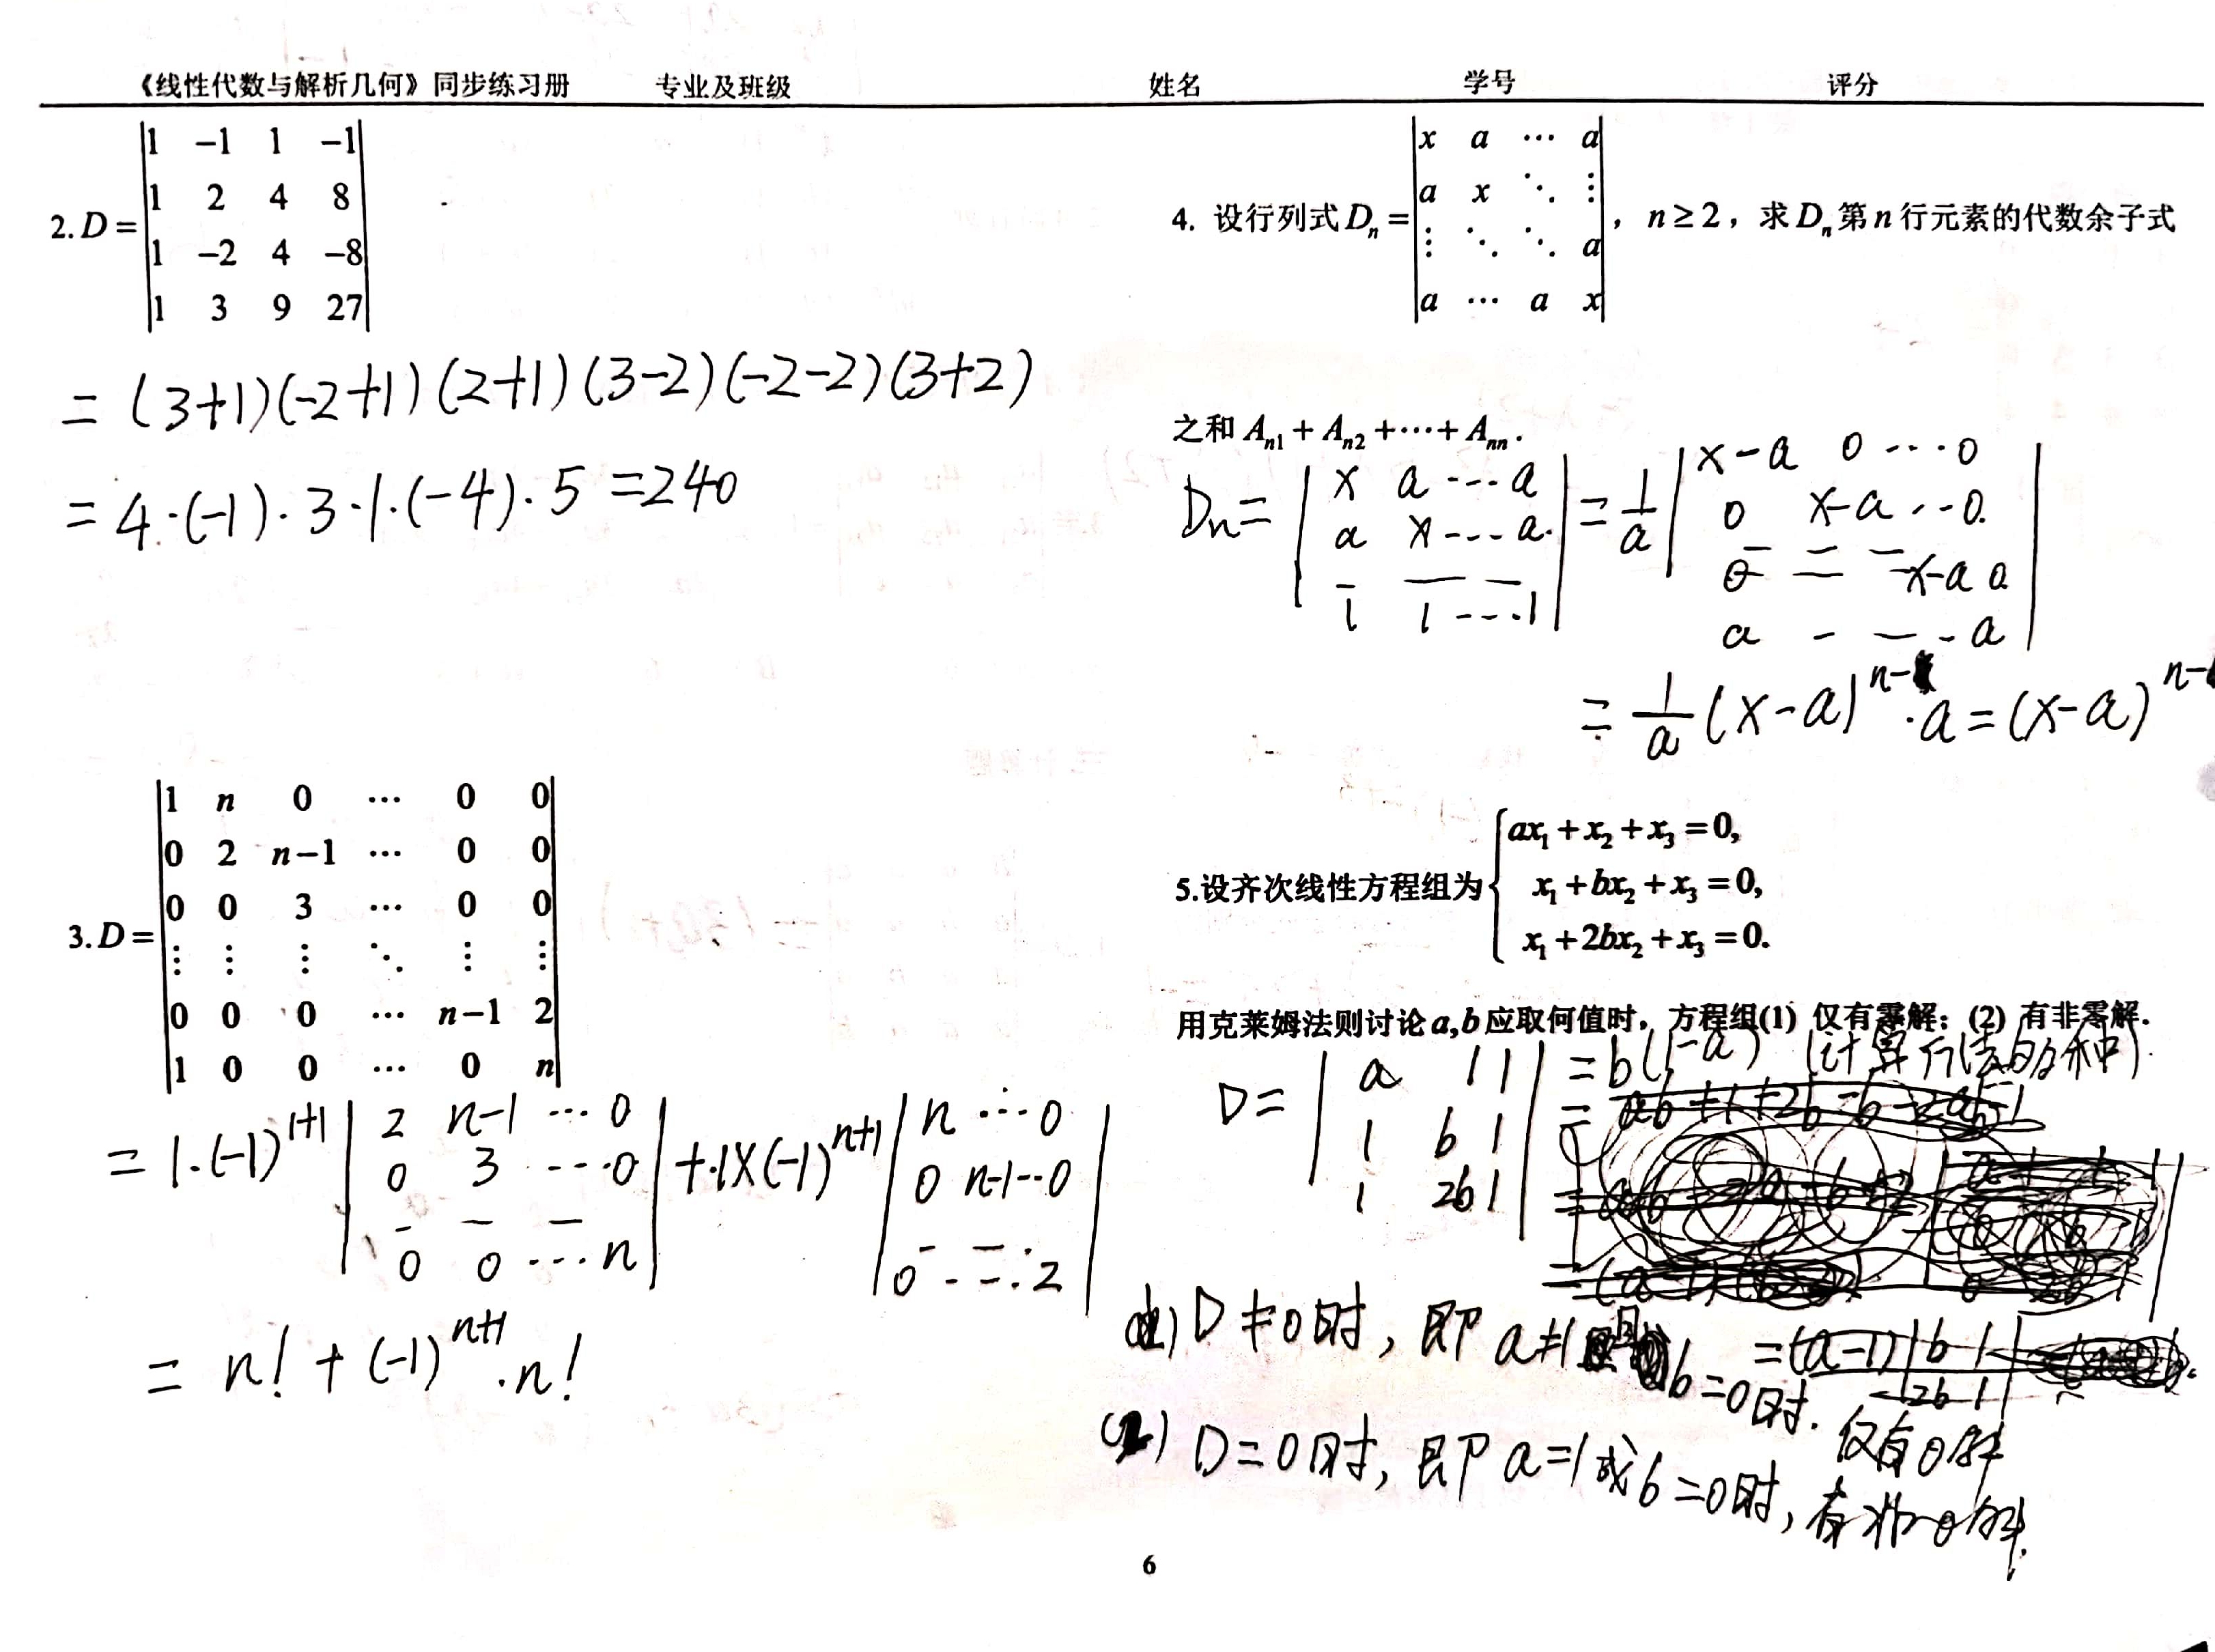 《线性代数与解析几何》同步练习册 专业及班级 姓名 学号 评分
2. D = | 1 −1 1 −1 |
| 1 2 4 8 |
| 1 −2 4 −8 |
| 1 3 9 27 |
= (3+1)(-2+1)(2+1)(3-2)(-2-2)(3+2)
= 4·(-1)·3·1·(-4)·5 = 240
3. D = | 1 n 0 ⋯ 0 0 |
| 0 2 n−1 ⋯ 0 0 |
| 0 0 3 ⋯ 0 0 |
| ⋮ ⋮ ⋮ ⋱ ⋮ ⋮ |
| 0 0 0 ⋯ n−1 2 |
| 1 0 0 ⋯ 0 n |
= 1·(-1)^{1+1} | 2 n-1 ⋯ 0 | + 1×(-1)^{n+1} | n ⋯ 0 |
| 0 3 ⋯ 0 | | 0 n-1 ⋯ 0 |
| 0 0 ⋯ n | | 0 ⋯ 2 |
= n! + (-1)^{n+1}·n!
4. 设行列式 D_n = | x a ⋯ a | , n ≥ 2, 求 D_n 第 n 行元素的代数余子式
| a x ⋱ ⋮ |
| ⋮ ⋱ ⋱ a |
| a ⋯ a x |
之和 A_{n1} + A_{n2} + ⋯ + A_{nn}.
D_n = | x a ⋯ a | = 1/a | x-a 0 ⋯ 0 |
| a x ⋯ a | | 0 x-a ⋯ 0 |
| 1 1 ⋯ 1 | | 0 x-a 0 |
| a ⋯ a |
= 1/a (x-a)^{n-1}·a = (x-a)^{n-1}
5.设齐次线性方程组为 { ax₁ + x₂ + x₃ = 0,
x₁ + bx₂ + x₃ = 0,
x₁ + 2bx₂ + x₃ = 0.
用克莱姆法则讨论 a,b 应取何值时, 方程组(1) 仅有零解; (2) 有非零解.
D = | a 1 1 | = b(1-a)
| 1 b 1 |
| 1 2b 1 |
(1) D ≠ 0 时, 即 a ≠ 1 b = 0 时. 仅有0解
= (a-1) | b 1 |
| 2b 1 |
(2) D = 0 时, 即 a = 1 或 b = 0 时, 有非0解.
6